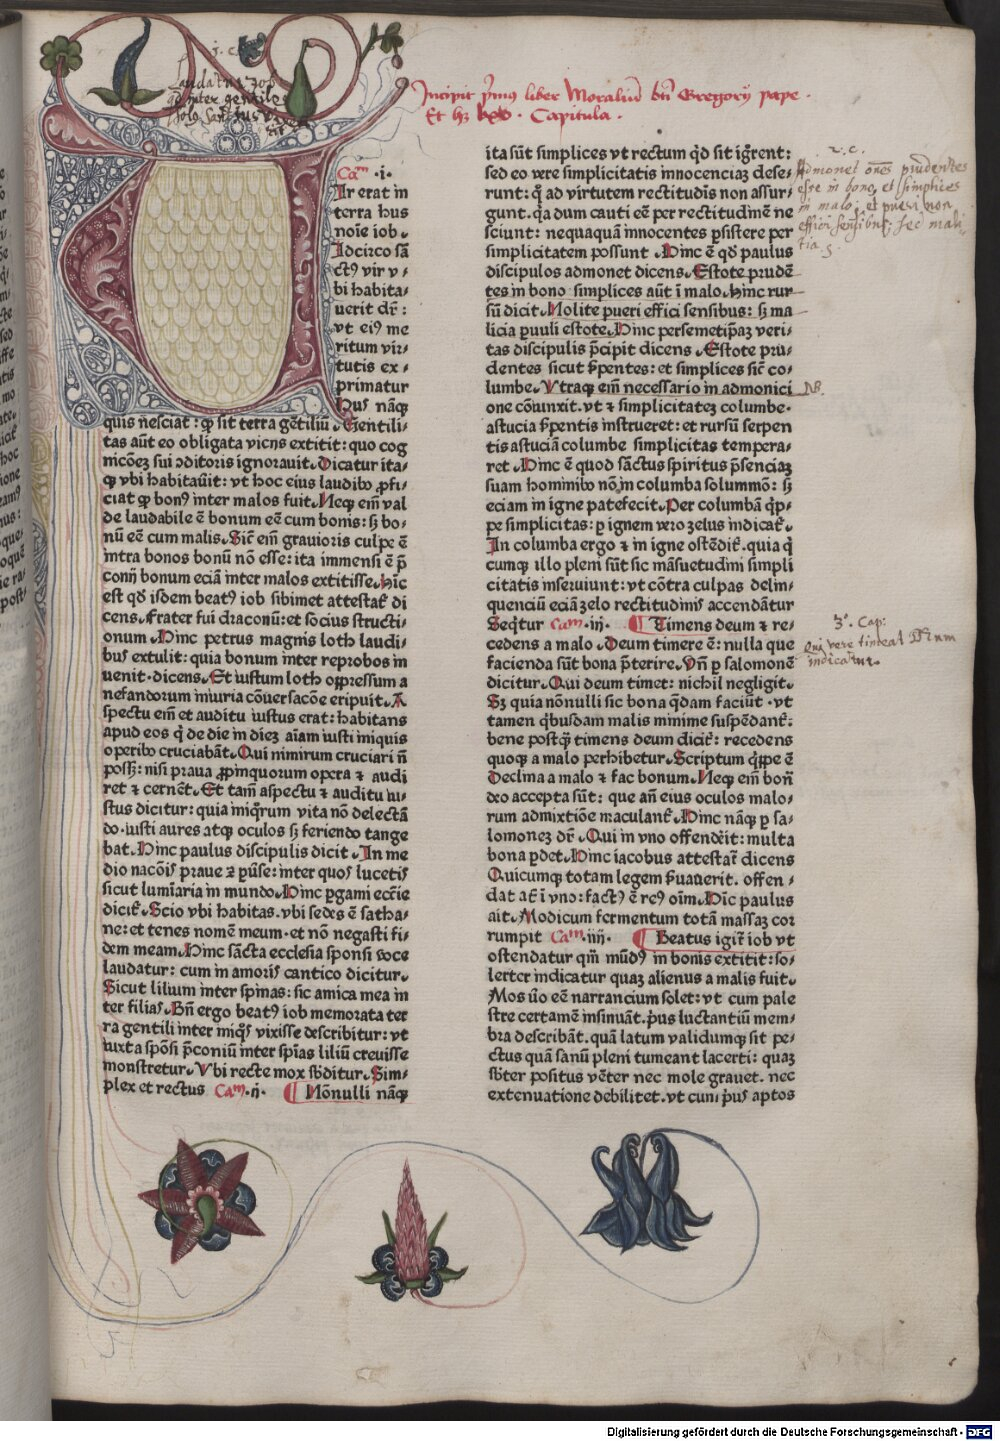 Incipit p̄mus liber Moraliū bt̄i Gregorij pape ·
Et hȝ xxv · Capitula ·
j. c.
Laudatur iob
qd inter gentiles
Caᵐ ·i·
Ir erat in
terra hus
noīe iob ⸗
Idcirco sā
ctꝰ vir v⸗
bi habita⸗
uerit dr̄:
vt eiꝰ me
ritum vir⸗
tutis ex⸗
primatur
Hus nāqꝫ
quis n̄esciat: qꝙ sit terra gētiliū. Gentili⸗
tas aūt eo obligata vicijs extitit: quo cog
nicōeꝫ sui ↄditoris ignorauit. Dicatur ita⸗
qꝫ vbi habitauit: vt hoc eius laudibꝰ ꝓfi⸗
ciat qꝙ bonꝰ inter malos fuit. Neqꝫ em̄ val
de laudabile ē bonum eē cum bonis: sꝫ bo⸗
nū eē cum malis. Sic̄ em̄ grauioris culpe ē
intra bonos bonū nō esse: ita immensi ē p̄
conij bonum eciā inter malos extitisse. Hic̄
est qd̄ isdem beatꝰ iob sibimet attestat᷑ di
cens. frater fui draconū: et socius structi⸗
onum. Hinc petrus magnis loth laudi⸗
bus extulit: quia bonum inter reprobos in
uenit · dicens. Et iustum loth oppressum a
nefandorum iniuria cōuersacōe eripuit. A
spectu em̄ et auditu iustus erat: habitans
apud eos q̇ de die in dieꝫ aīam iusti iniquis
operibꝰ cruciabāt. Qui nimirum cruciari n̄
possꝫ: nisi praua ꝓpinquorum opera ⁊ audi
ret ⁊ cernēt. Et tam̄ aspectu ⁊ auditu iu⸗
stus dicitur: quia iniq̄rum vita nō delectā
do · iusti aures atqꝫ oculos sꝫ feriendo tange
bat. Hinc paulus discipulis dicit. In me
dio nacōis praue ⁊ puꝰse: inter quos lucetis
sicut lumīaria in mundo. Hinc ꝑgami ecc̄ie
dicit᷑. Scio vbi habitas. vbi sedes ē satha⸗
ne: et tenes nomē meum · et nō negasti fi⸗
dem meam. Hinc sācta ecclesia sponsi voce
laudatur: cum in amoris cantico dicitur.
Sicut lilium inter spinas: sic amica mea in
ter filias. Bn̄ ergo beatꝰ iob memorata ter
ra gentili inter miq̄s vixisse describitur: vt
iuxta spōsi p̄coniū inter spīas liliū creuisse
monstretur. Vbi recte mox sb̄ditur. Sim⸗
plex et rectus Caᵐ ·ij· ¶ Nōnulli nāqꝫ
ita sūt simplices vt rectum qd̄ sit ign̄rent:
sed eo vere simplicitatis innocenciaꝫ dese⸗
runt: q̄ ad virtutem rectitudīs non assur⸗
gunt. q̇a dum cauti eē per rectitudīnē ne
sciunt: nequaquā innocentes ꝑsistere per
simplicitatem possunt. Hinc ē qd̄ paulus
discipulos admonet dicens. Estote prudē⸗
tes in bono simplices aūt ī malo. Hinc rur⸗
sū dicit. Nolite pueri effici sensibus: sꝫ ma
licia ꝑuuli estote. Hinc per semetip̄aꝫ veri⸗
tas discipulis p̄cipit dicens. Estote pru⸗
dentes sicut s̄pentes: et simplices sic̄ co⸗
lumbe. Vtraqꝫ em̄ necessario in admonici
one cōiunxit. vt ⁊ simplicitateꝫ columbe⸗
astucia s̄pentis instrueret: et rursū serpen
tis astuciā columbe simplicitas tempera⸗
ret. Hinc ē quod sāctus spiritus p̄senciaꝫ
suam hominibꝰ nō in columba solummō: sꝫ
eciam in igne patefecit. Per columbā q̇p⸗
pe simplicitas: ꝑ ignem vero zelus indicat᷑.
In columba ergo ⁊ in igne ostēdit᷑. quia q̇
cumqꝫ illo pleni sūt sic māsuetudini simpli
citatis inseruiunt: vt cōtra culpas delin⸗
quenciū eciā zelo rectitudinis accendātur
Seqt̄ur Caᵐ ·iij· ¶ Timens deum ⁊ re⸗
cedens a malo. Deum timere ē: nulla que
facienda sūt bona p̄terire. Vn̄ ꝑ salomonē
dicitur. Qui deum timet: nichil negligit.
Sꝫ quia nōnulli sic bona q̄dam faciūt · vt
tamen q̇busdam malis minime suspēdant᷑:
bene postq̄ timens deum dicit᷑: recedens
quoqꝫ a malo perhibetur. Scriptum q̇ꝑe ē
Declina a malo ⁊ fac bonum. Neqꝫ em̄ bon̄
deo accepta sūt: que an̄ eius oculos malo⸗
rum admixtiōe maculant᷑. Hinc nāqꝫ ꝑ sa⸗
lomoneꝫ dr̄. Qui in vno offenderit: multa
bona ꝑdet. Hinc iacobus attestat᷑ dicens
Quicumqꝫ totam legem s̄uauerit. offen⸗
dat at̄ ī vno: factꝰ ē reꝰ oīm. Hic̄ paulus
ait. Modicum fermentum totā massaꝫ cor
rumpit Caᵐ ·iiij· ¶ Beatus igit᷑ iob vt
ostendatur qm̄ mūdꝰ in bonis extitit: so⸗
lerter indicatur quaꝫ alienus a malis fuit.
Mos v̄o eē narrancium solet: vt cum pale
stre certamē insinuāt. pꝰus luctantiū mem⸗
bra describāt. quā latum validumqꝫ sit pe⸗
ctus quā sanū pleni tumeant lacerti: quaꝫ
sb̄ter positus vēter nec mole grauet. nec
extenuatione debilitet. vt cum pꝰus aptos
2. c.
Admonet om̄es prudentes
esse in bono, et simplices
in malo, et pueri non
effici sensibus; sed mali⸗
tia.
NB.
3ᵒ. Cap:
Qui vere timeat Deum
indicatur.
Digitalisierung gefördert durch die Deutsche Forschungsgemeinschaft - DFG